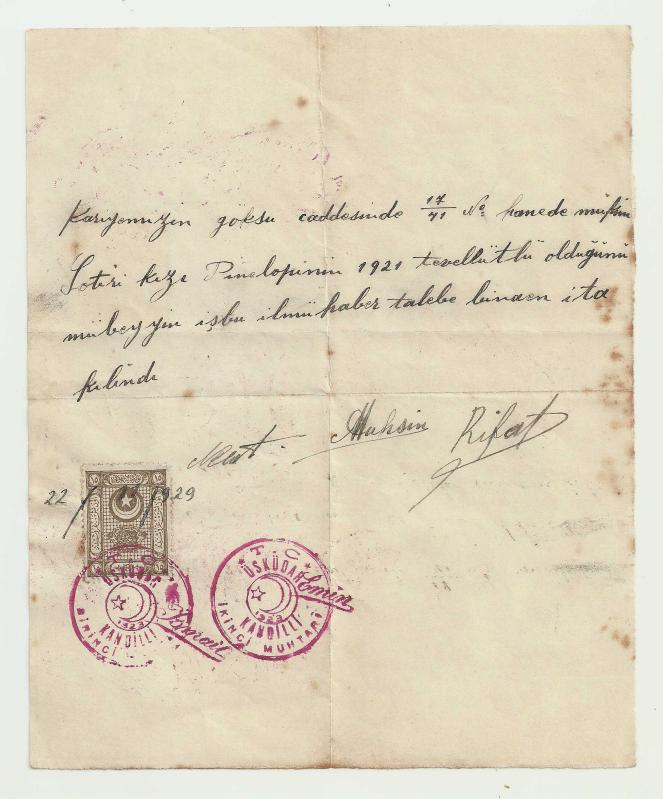 Kariyemizin göksu caddesinde 17/41 No. hanede mukim
Sotiri kızı Pinelopinin 1921 tevellütlü olduğunu
mübeyyin işbu ilmühaber talebe binaen ita
kılındı
Muhsin Rifat
22 / 11 / 1929
T C
ÜSKÜDAR
1923
KANDİLLİ
BİRİNCİ
İsmail
T C
ÜSKÜDAR
1923
KANDİLLİ
İKİNCİ MUHTARI
Emin